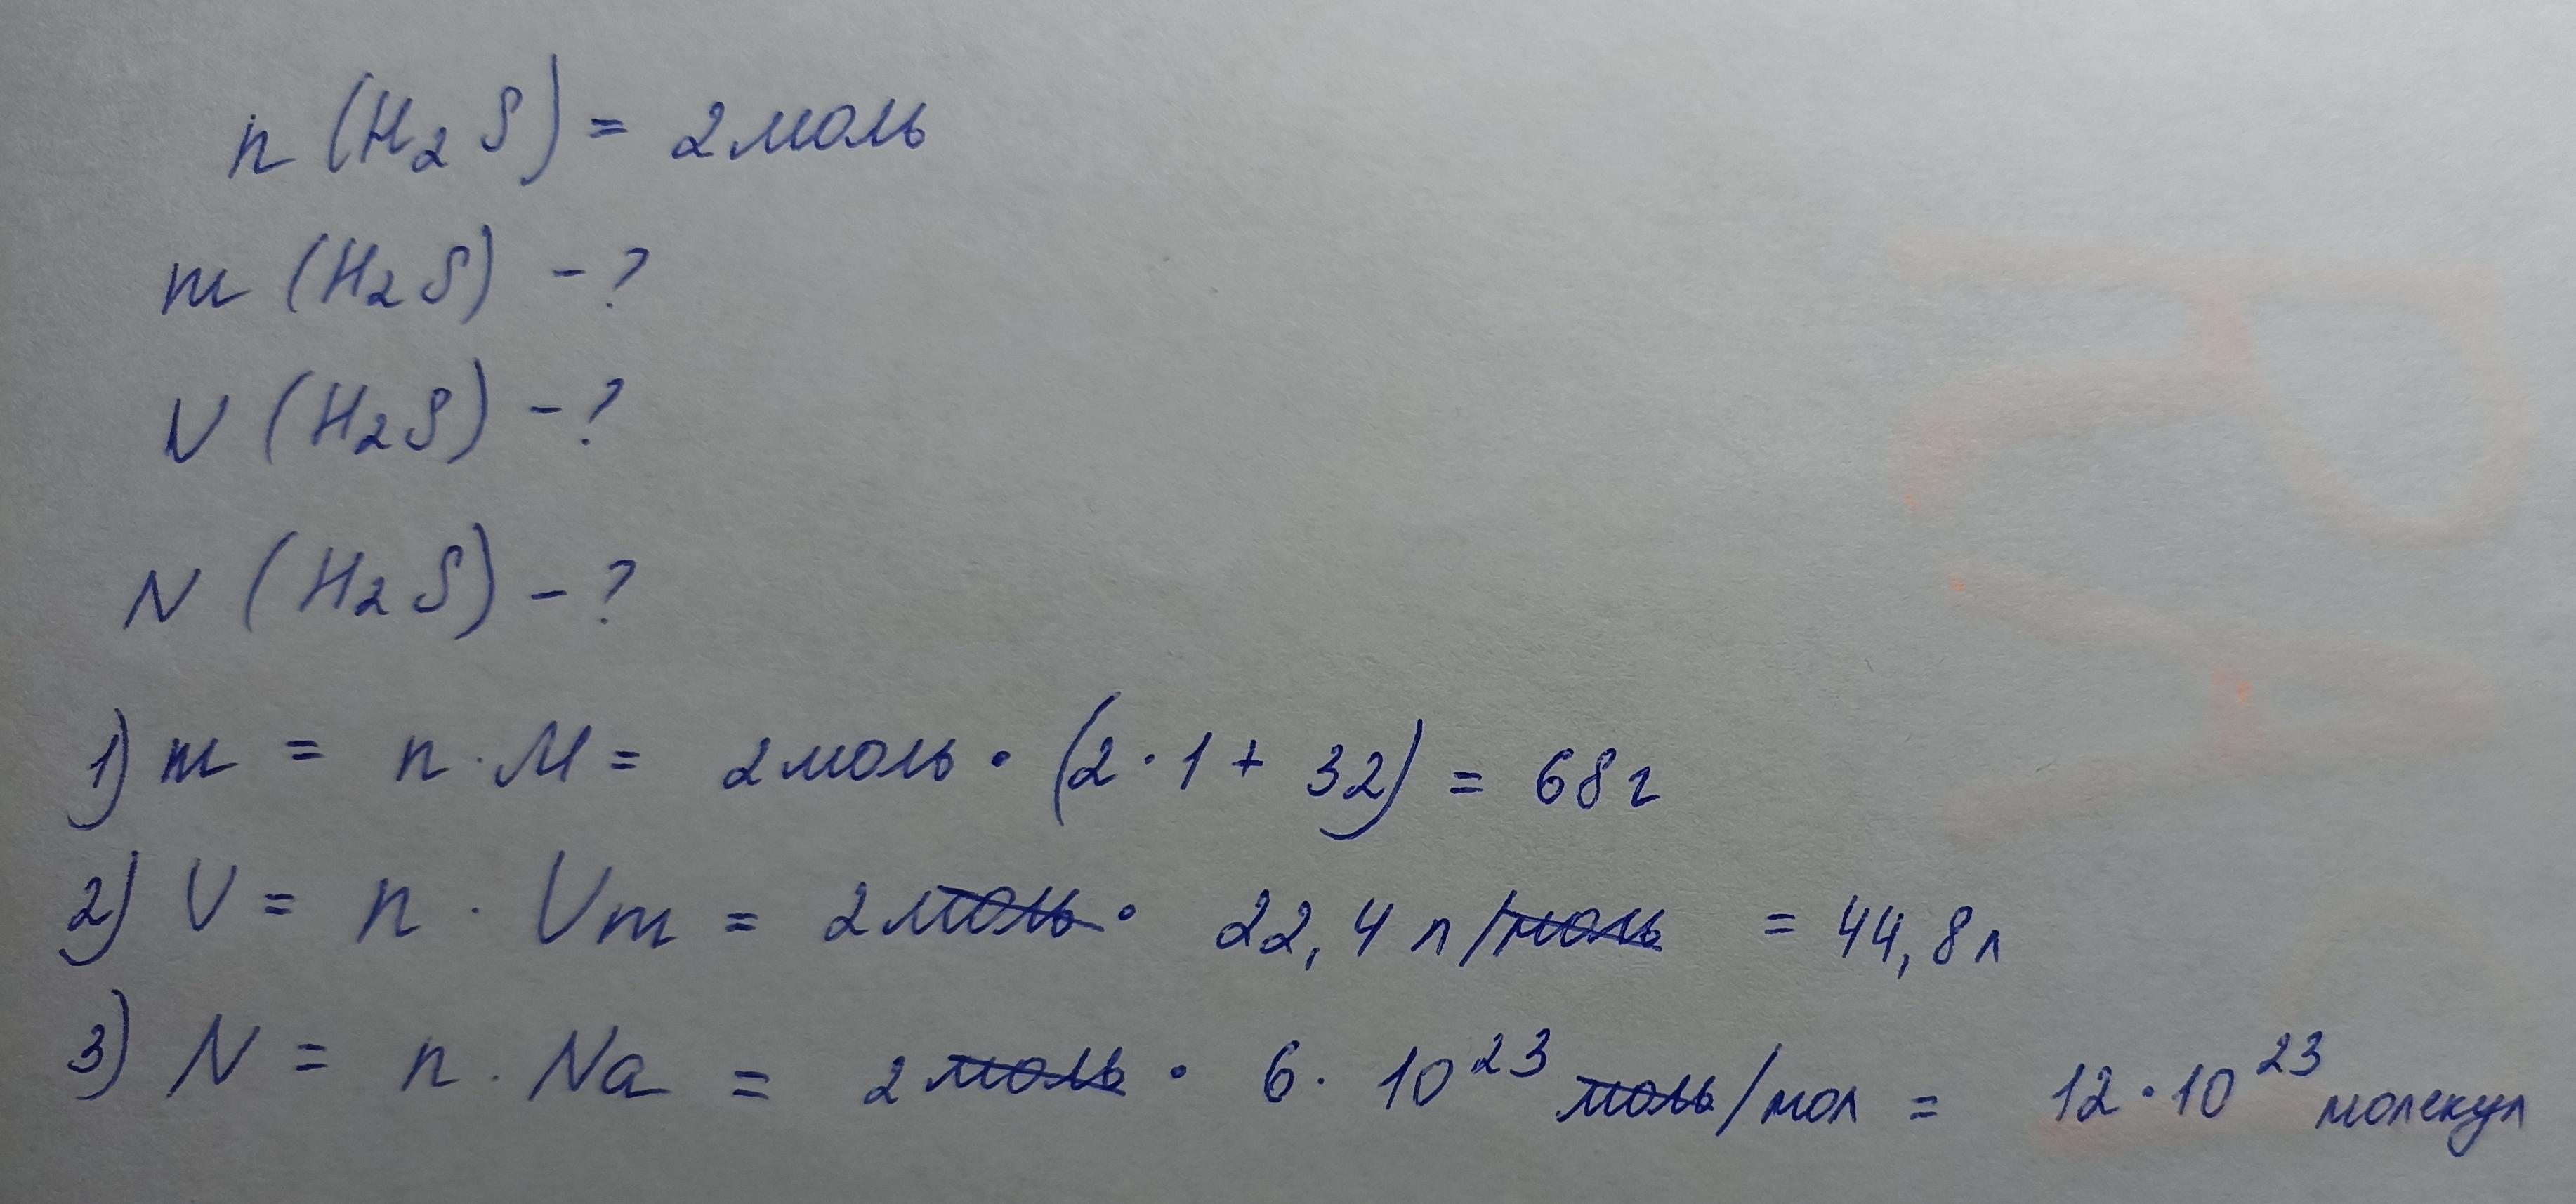 n (H₂S) = 2 моль
m (H₂S) - ?
V (H₂S) - ?
N (H₂S) - ?
1) m = n · M = 2 моль · (2 · 1 + 32) = 68 г
2) V = n · Vm = 2 моль · 22,4 л/моль = 44,8 л
3) N = n · Na = 2 моль · 6 · 10²³ моль/мол = 12 · 10²³ молекул